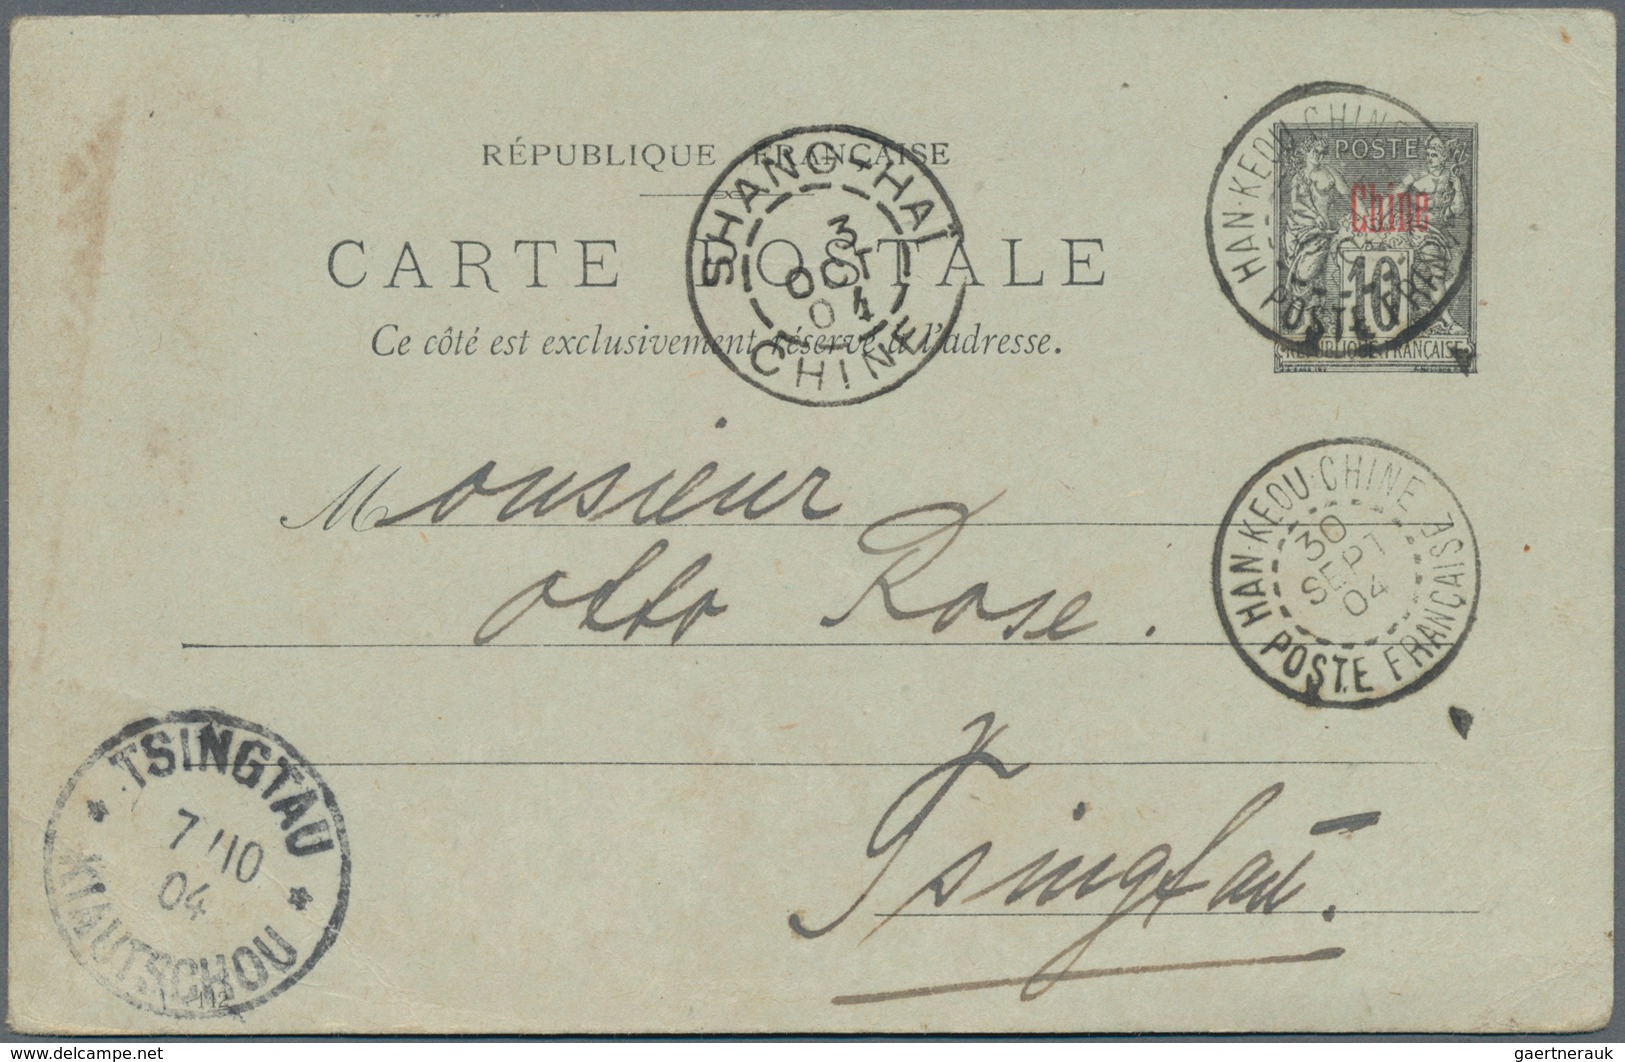 RÉPUBLIQUE FRANÇAISE
CARTE POSTALE
Ce côté est exclusivement réservé à l'adresse.
SHANG-HAÏ
3
OCT
04
CHINE
HAN-KEOU-CHINE
POSTE FRANÇAISE
POSTE
Chine
10
RÉPUBLIQUE FRANÇAISE
Monsieur
Otto Rose.
Tsingtau.
HAN-KEOU-CHINE
30
SEPT
04
POSTE FRANÇAISE
* TSINGTAU *
7/10
04
KIAUTSCHOU
www.delcampe.net
gaertnerauk